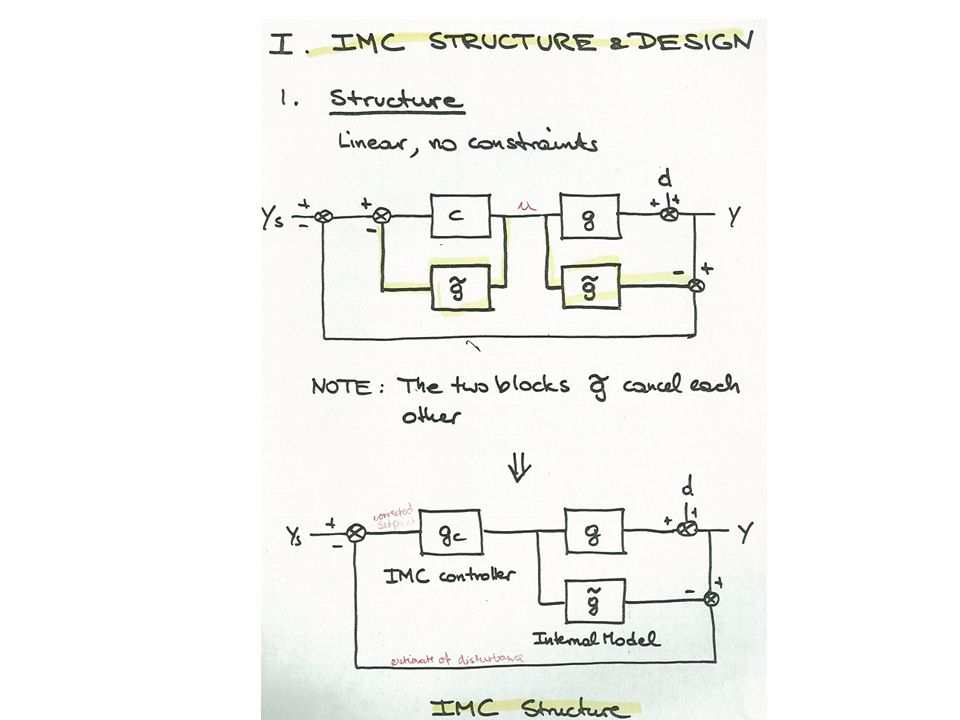 I. IMC STRUCTURE & DESIGN
1. Structure
Linear, no constraints
d
Ys + - + - c u g + + Y
g̃ g̃ - +
NOTE: The two blocks g̃ cancel each
other
⇓
d
Ys + - corrected gc g + + Y
IMC controller
g̃ - +
Internal Model
estimate of disturbance
IMC Structure